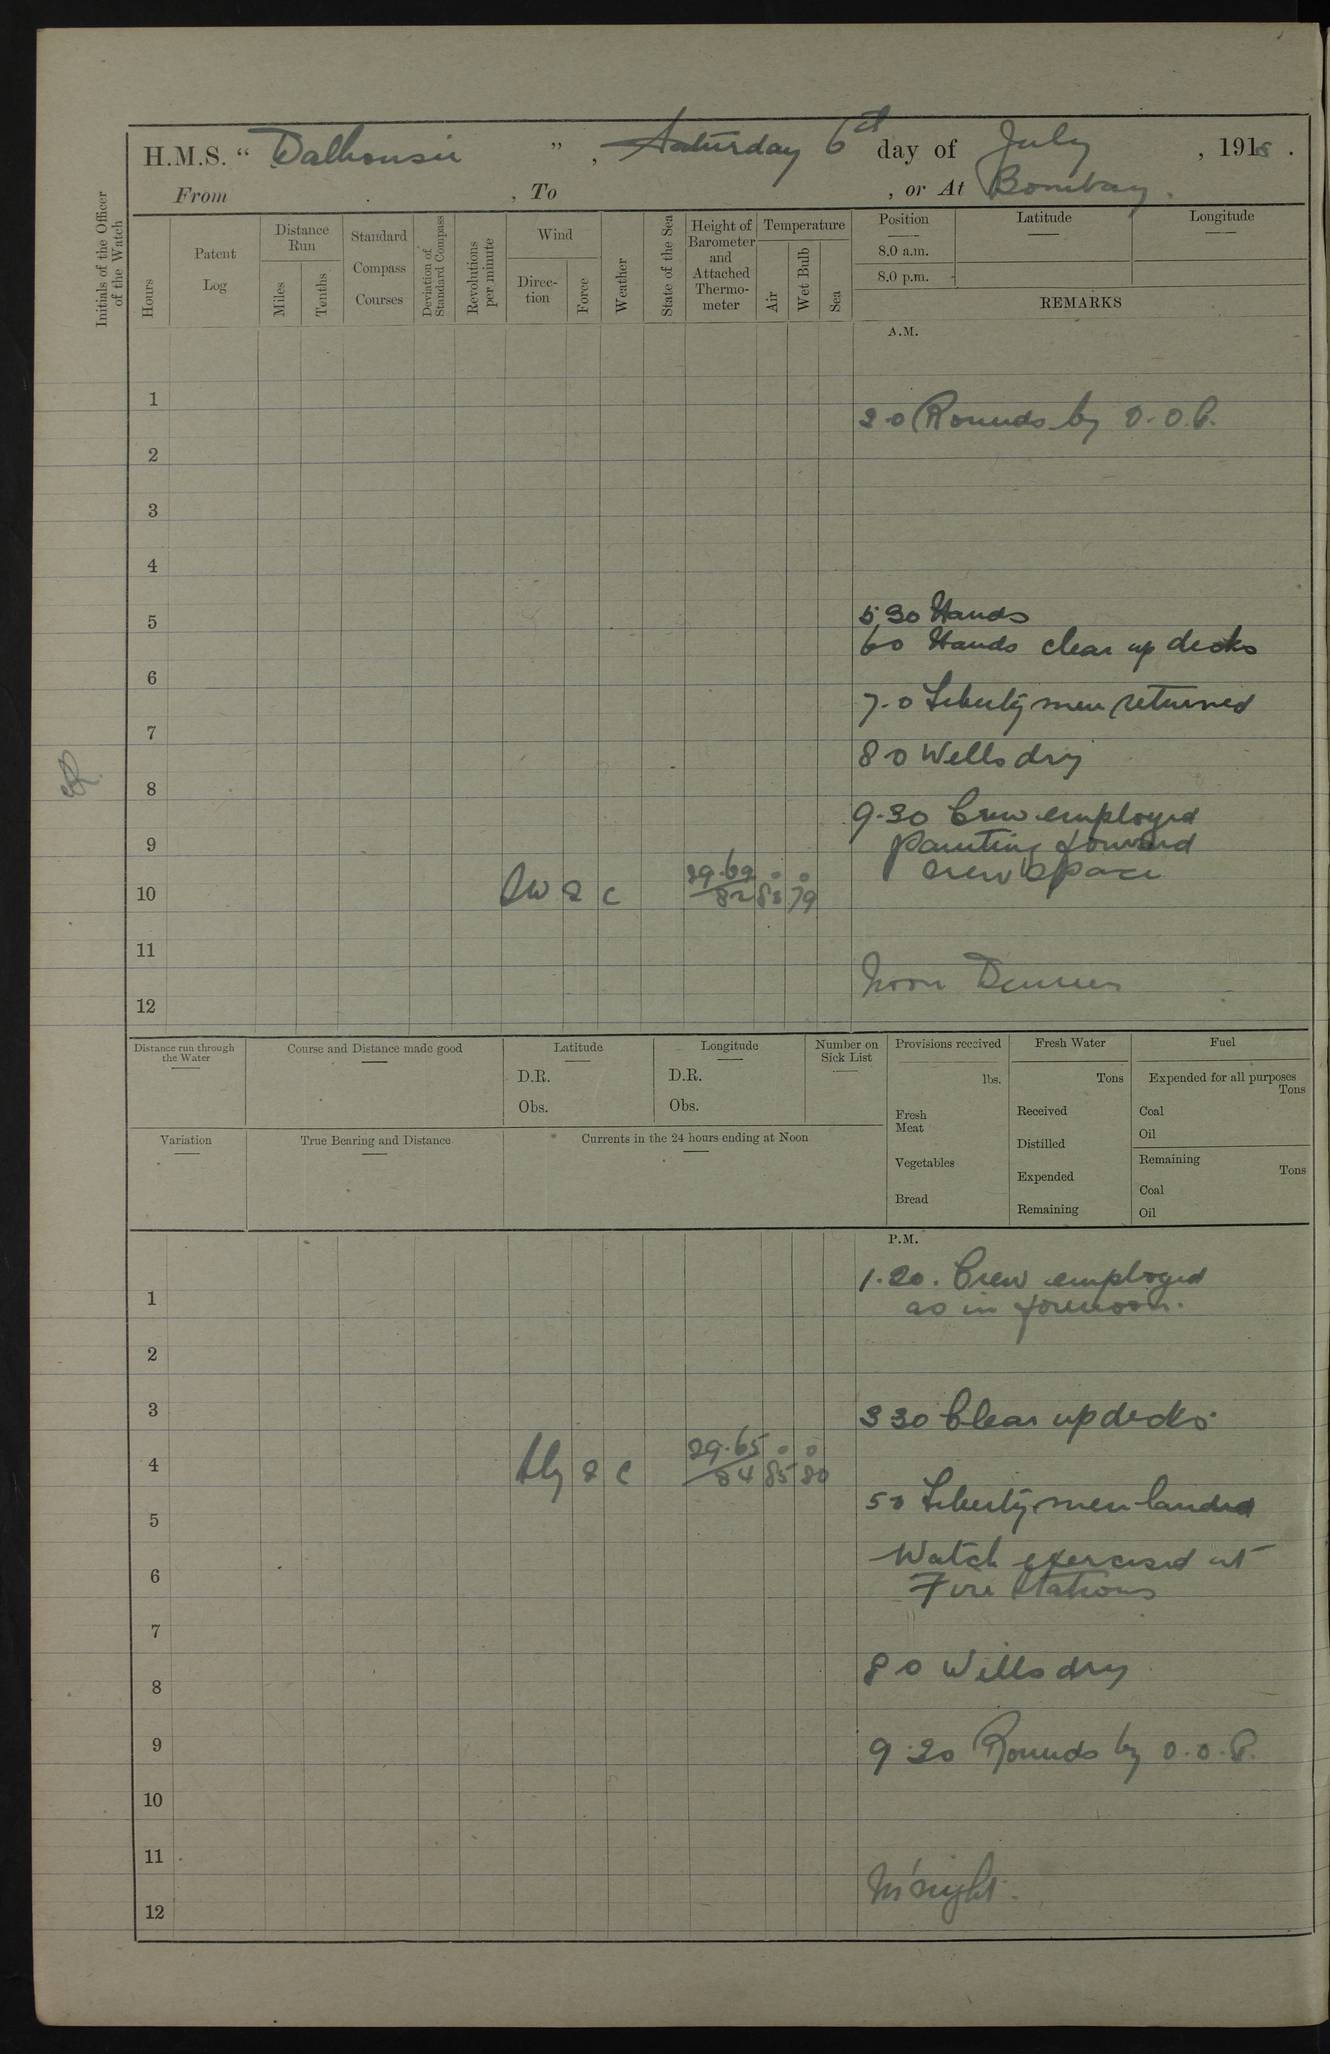 H.M.S. “ Dalhousie ” , Saturday 6th day of July , 1918 .
From , To , or At Bombay.
Initials of the Officer of the Watch
Hours
Patent Log
Distance Run
Miles
Tenths
Standard Compass Courses
Deviation of Standard Compass
Revolutions per minute
Wind
Direc-tion
Force
Weather
State of the Sea
Height of Barometer and Attached Thermo-meter
Temperature
Air
Wet Bulb
Sea
Position
8.0 a.m.
8.0 p.m.
Latitude
Longitude
REMARKS
A.M.
1
2.0 Rounds by O.O.P.
2
3
4
5.30 Hands
5
6 0 Hands clear up decks
6
7.0 Liberty men returned
7
8 0 Wells dry
8
9.30 Crew employed
9
painting forward
crew space
10 SW 2 c 29.62 / 82 83° 79°
11
Noon Dinner
12
Distance run through the Water
Course and Distance made good
Latitude
D.R.
Obs.
Longitude
D.R.
Obs.
Number on Sick List
Provisions received
lbs.
Fresh Meat
Vegetables
Bread
Fresh Water
Tons
Received
Distilled
Expended
Remaining
Fuel
Expended for all purposes
Tons
Coal
Oil
Remaining
Tons
Coal
Oil
Variation
True Bearing and Distance
Currents in the 24 hours ending at Noon
P.M.
1.20. Crew employed
1
as in forenoon.
2
3
3 30 Clear up decks.
4 Sly 2 c 29.65 / 84 85° 80°
5 0 Liberty men landed
5
Watch exercised at
6
Fire Stations
7
8 0 Wells dry
8
9
9.20 Rounds by O.O.P.
10
11
M'night.
12